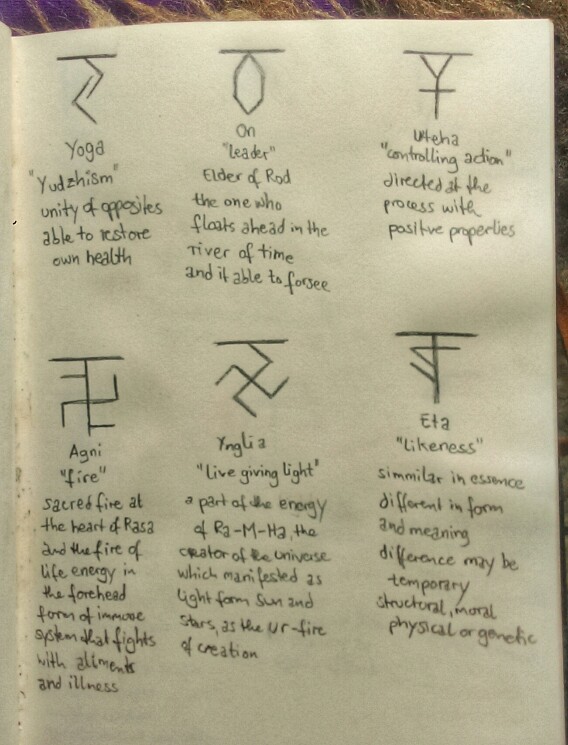 Yoga
"Yudzhism"
unity of opposites
able to restore
own health
On
"leader"
Elder of Rod
the one who
floats ahead in the
river of time
and if able to forsee
Uteha
"controlling action"
directed at the
process with
positive properties
Agni
"fire"
sacred fire at
the heart of Rasa
and the fire of
life energy in
the forehead
form of immune
system that fights
with ailments
and illness
Ynglia
"Live giving light"
a part of the energy
of Ra-M-Ha, the
creator of the universe
which manifested as
light form Sun and
stars, as the Ur-fire
of creation
Eta
"Likeness"
simmilar in essence
different in form
and meaning
difference may be
temporary
structural, moral
physical or genetic